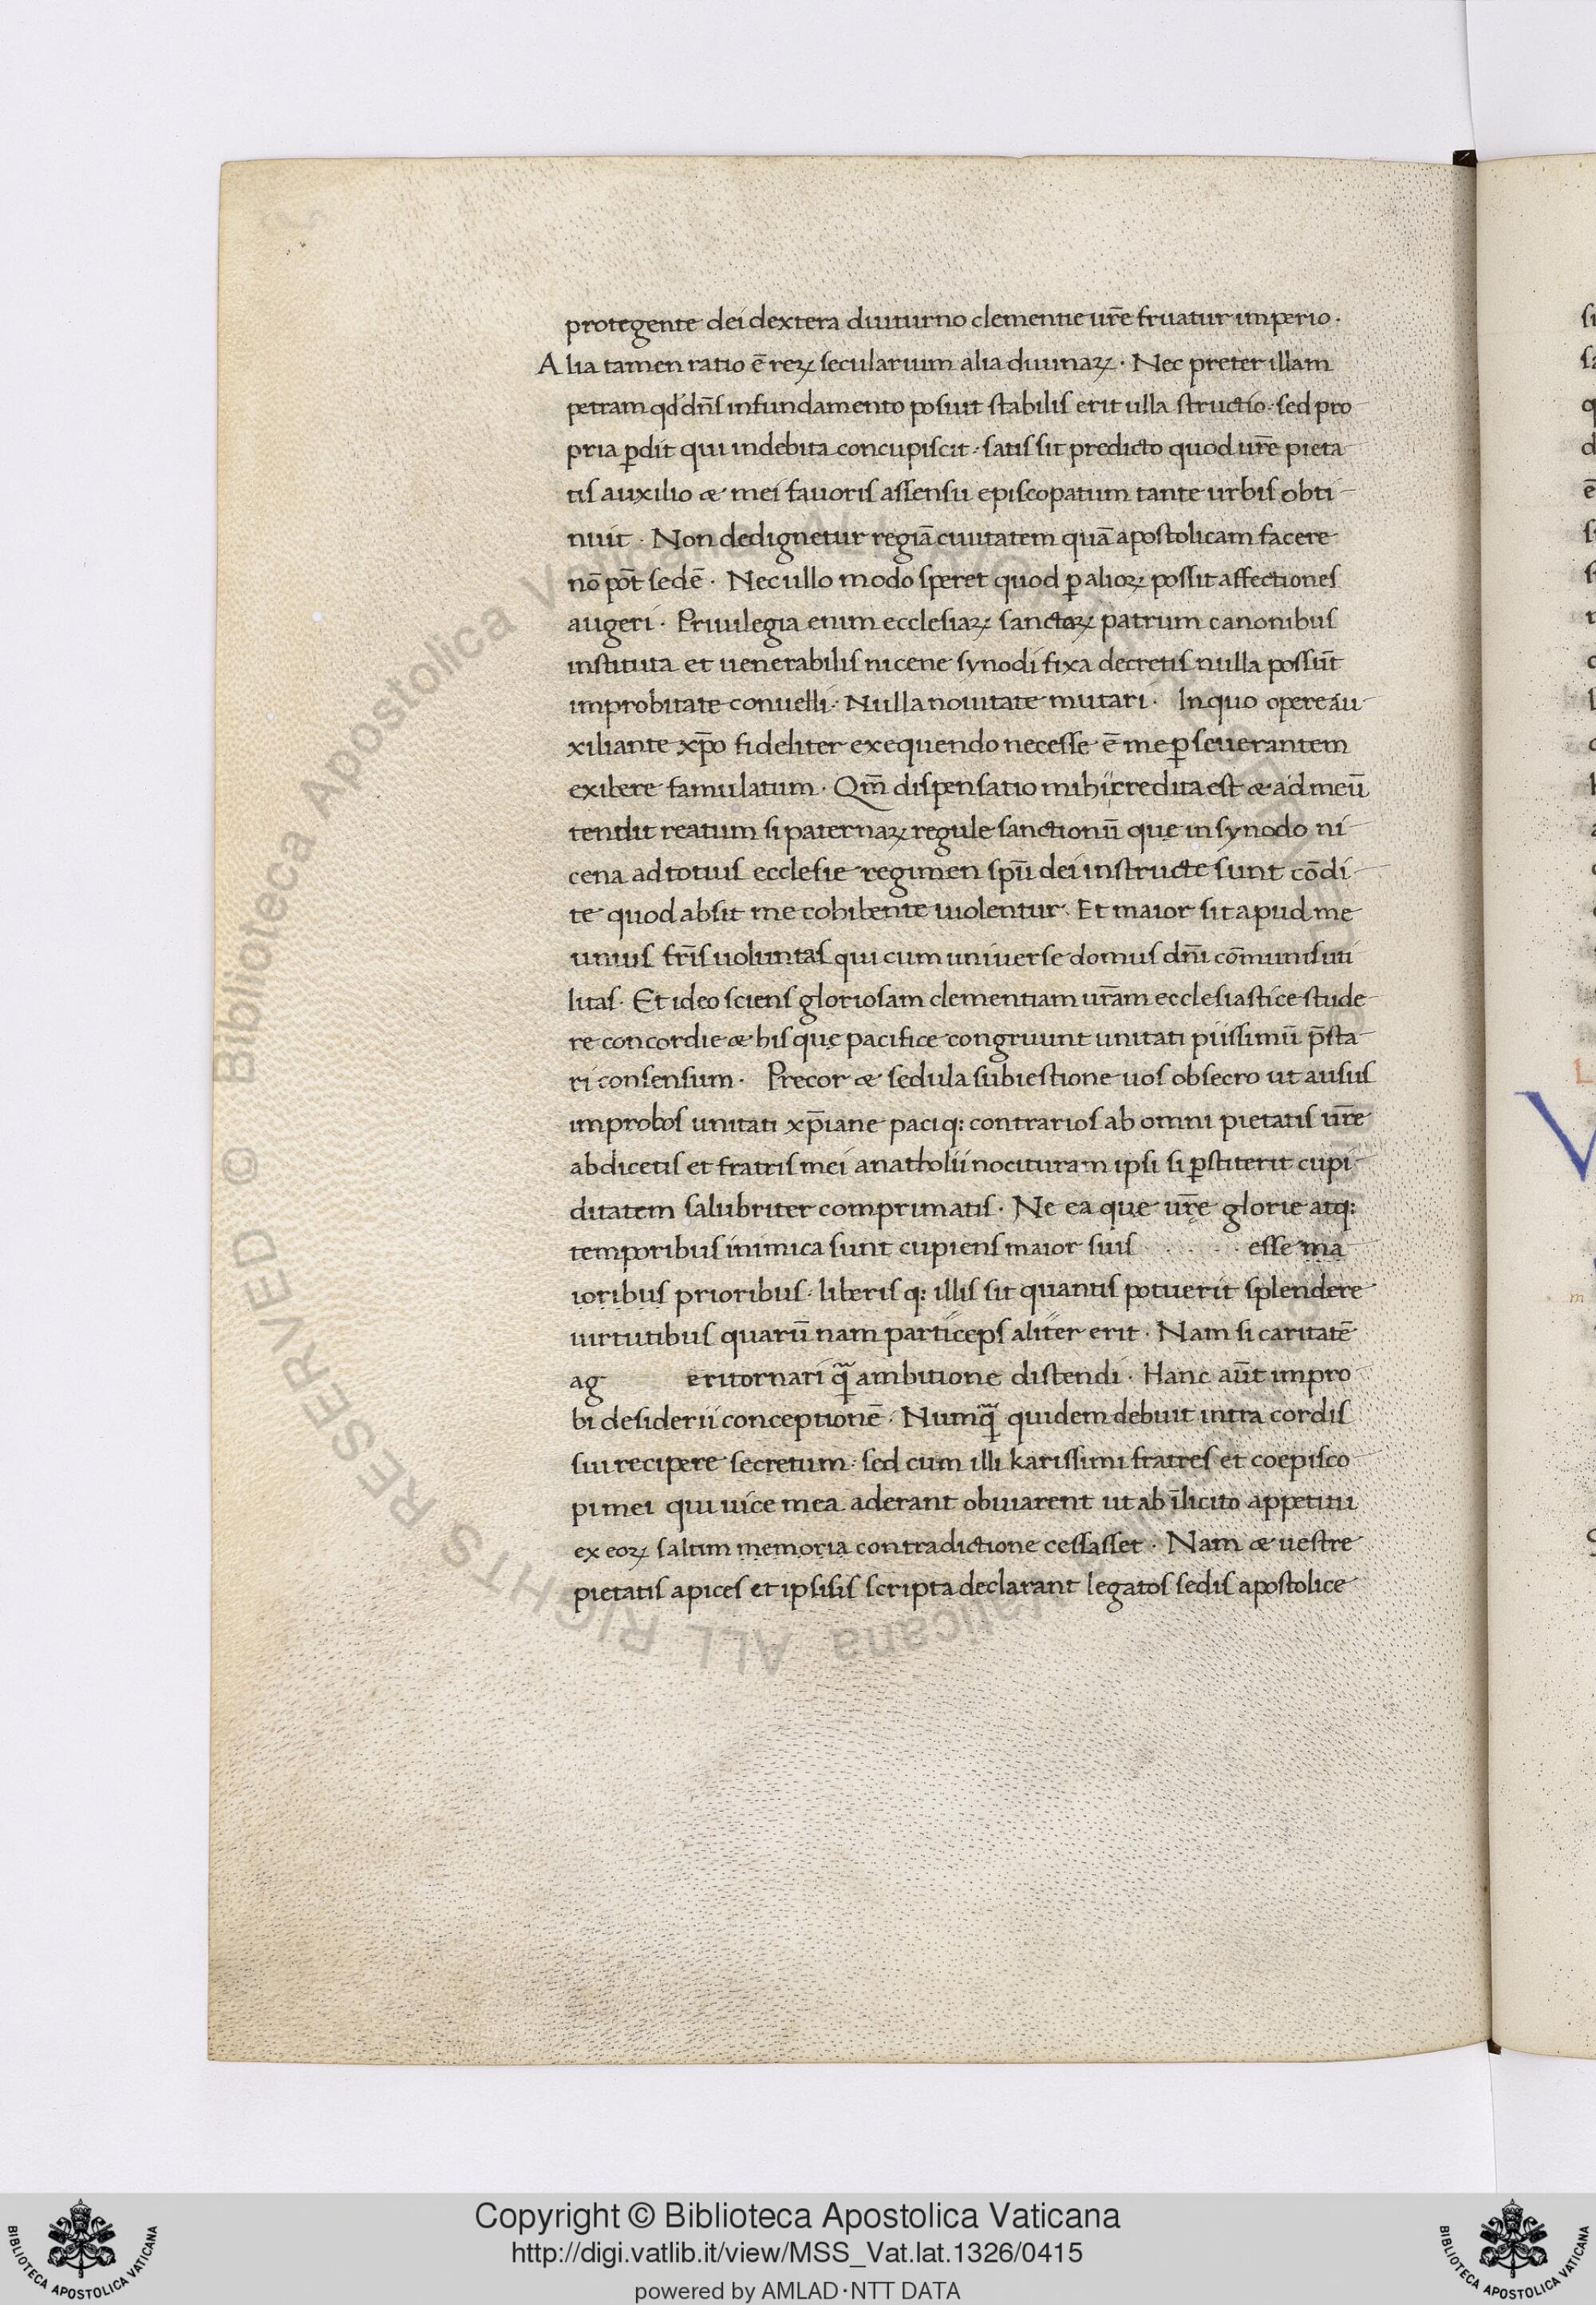 protegente dei dextera diuturno clementie ur̄e fruatur imperio ·
Alia tamen ratio ē reꝝ secularium alia diuinaꝝ · Nec preter illam
petram qd̓ dn̄s in fundamento posuit stabilis erit ulla structio · sed pro
pria ꝑdit qui indebita concupiscit · satis sit predicto quod ur̄e pieta
tis auxilio & mei fauoris assensu episcopatum tante urbis obti
nuit · Non dedignetur regiā ciuitatem quā apostolicam facere
nō pōt sedē · Nec ullo modo speret quod ꝑ alioꝝ possit affectiones
augeri · Priuilegia enim ecclesiaꝝ sanctoꝝ patrum canonibus
instituta et uenerabilis nicene synodi fixa decretis nulla possūt
improbitate conuelli · Nulla nouitate mutari · In quo opere au
xiliante xp̄o fideliter exequendo necesse ē me ꝑseuerantem
exibere famulatum · Qm̄ dispensatio mihi credita est & ad meū
tendit reatum si paternaꝝ regule sanctionū que in synodo ni
cena ad totius ecclesie regimen spū dei instructe sunt cōdi
te quod absit me cohibente uiolentur · Et maior sit apud me
unius fr̄is uoluntas qui cum universe domus dn̄i cōmunis uti
litas · Et ideo sciens gloriosam clementiam ur̄am ecclesiastice stude
re concordie & his que pacifice congruunt unitati piissimū p̄sta
ri consensum · Precor & sedula subiestione uos obsecro ut ausus
improbos unitati xp̄iane paciq: contrarios ab omni pietatis ur̄e
abdicetis et fratris mei anatholii nocituram ipsi si ꝑstiterit cupi
ditatem salubriter comprimatis · Ne ea que ur̄e glorie atq:
temporibus inimica sunt cupiens maior suis · . . . · esse ma
ioribus prioribus · liberis q: illis sit quantis potuerit splendere
uirtutibus quarū nam particeps aliter erit · Nam si caritatē
ag erit ornari q̄ ambitione distendi · Hanc aūt impro
bi desiderii conceptionē · Numq̄ quidem debuit intra cordis
sui recipere secretum · sed cum illi karissimi fratres et coepisco
pi mei qui uice mea aderant obuiarent ut ab īlicito appetitu
ex eoꝝ saltim memoria contradictione cessasset · Nam & uestre
pietatis apices et ipsisis scripta declarant legatos sedis apostolice
Copyright © Biblioteca Apostolica Vaticana
http://digi.vatlib.it/view/MSS_Vat.lat.1326/0415
powered by AMLAD·NTT DATA